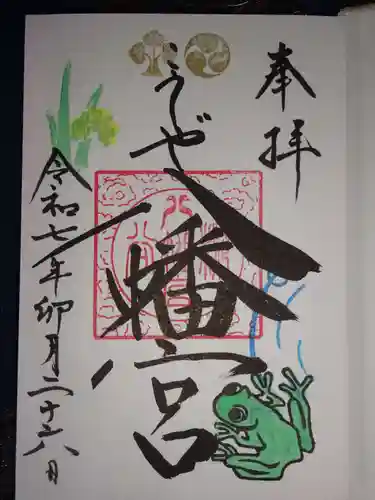 奉拝
こうぜ
八幡宮
令和七年卯月二十六日